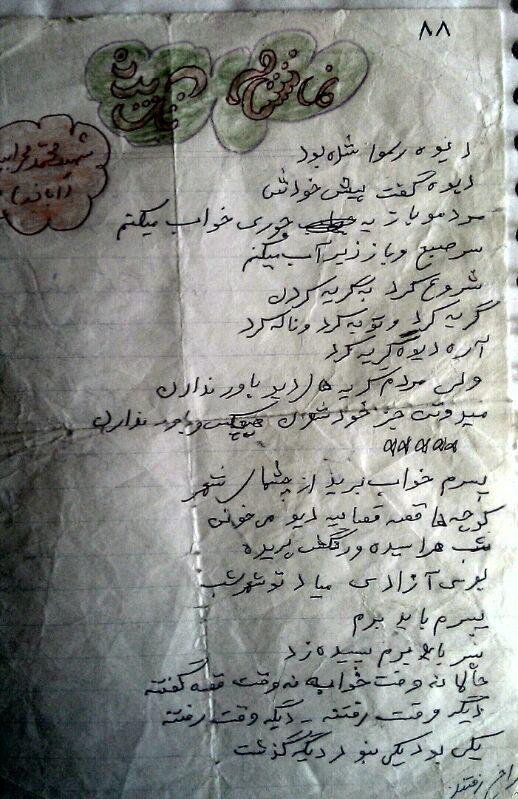 ۸۸
دیوه رسوا شده بود
دیوه گفت پیش خودش
مردمو باز یه جوری خواب میکنم
سر صبح و باز زیر آب میکنم
شروع کرد به گریه کردن
گریه کرد و توبه کرد و ناله کرد
آره دیوه گریه کرد
ولی مردم گریه ها دیو باور ندارن
میدونن جز خودشون هیچکس و باور ندارن
پسرم خواب پرید از چشمای شهر
کوچه ها قصه قصابیه دیو می خونن
شب هراسیده و رنگش پریده
بوی آزادی میاد تو شهر شب
پسرم باید برم
پسر باید برم سپیده زد
حالا نه وقت خوابه نه وقت قصه گفتنه
دیگر وقت رفتنه - دیگه وقت رفتنه
یکی بود یکی نبود دیگر گذشت